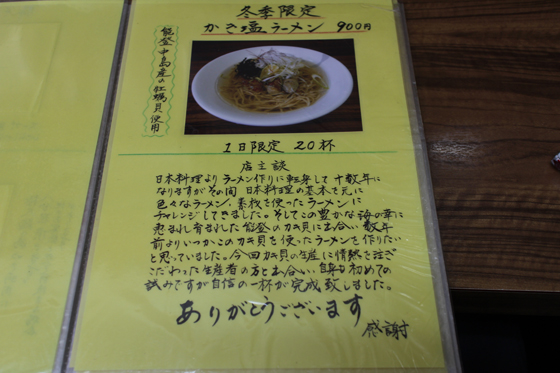 冬季限定
かき塩ラーメン 900円
能登中島産の牡蠣貝使用
1日限定 20杯
店主談
日本料理よりラーメン作りに転身して十数年に
なりますがその間 日本料理の基本を元に
色々なラーメン、素材を使ったラーメンに
チャレンジしてきました。そしてこの豊かな海の幸に
恵まれ育まれた能登のカキ貝に出合い 数年
前よりいつかこのカキ貝を使ったラーメンを作りたい
と思っていました。今回カキ貝の生産に情熱を注ぎ
こだわった生産者の方と出合い 自身も初めての
試みですが自信の一杯が完成致しました。
ありがとうございます
感謝